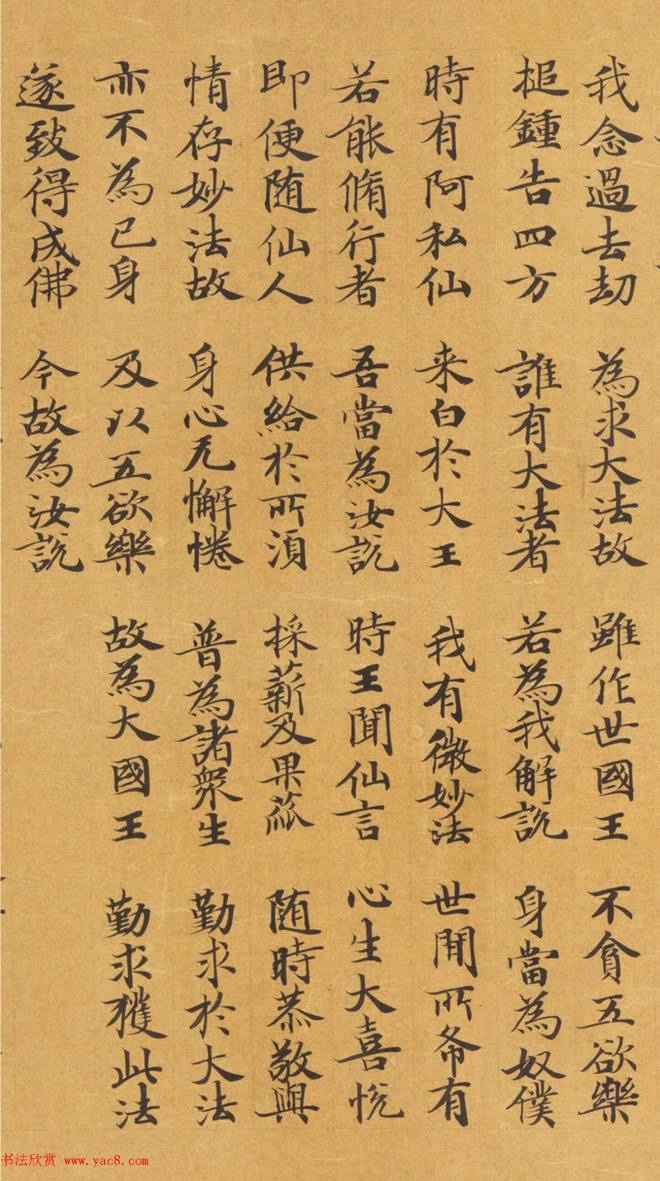 我念過去劫 為求大法故 雖作世國王 不貪五欲樂
搥鍾告四方 誰有大法者 若為我解說 身當為奴僕
時有阿私仙 来白於大王 我有微妙法 世間所希有
若能脩行者 吾當為汝說 時王聞仙言 心生大喜悅
即便随仙人 供給於所湏 採薪及果蓏 随時恭敬與
情存妙法故 身心无懈惓 普為諸衆生 勤求於大法
亦不為己身 及以五欲樂 故為大國王 勤求獲此法
遂致得成佛 今故為汝說
书法欣赏 www.yac8.com